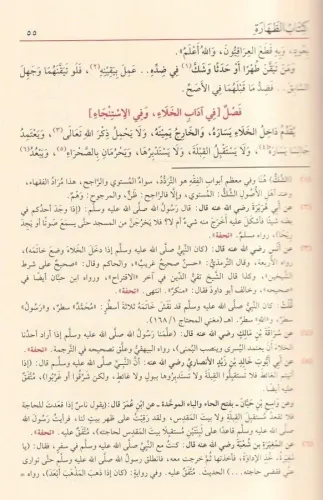 كِتَابُ الطَّهَارَةِ
٥٥
يَعُودُ، وَبِهِ قَطَعَ العِرَاقِيُّونَ، وَاللهُ أَعْلَمُ».
وَمَنْ تَيَقَّنَ طُهْرًا أَوْ حَدَثًا وَشَكَّ(١) فِي ضِدِّهِ.. عَمِلَ بِيَقِينِهِ(٢)، فَلَوْ تَيَقَّنَهُمَا وَجَهِلَ
السَّابِقَ.. فَضِدُّ مَا قَبْلَهُمَا فِي الأَصَحِّ.
فَصْلٌ [فِي آدَابِ الخَلَاءِ، وَفِي الِاسْتِنْجَاءِ]
يُقَدِّمُ دَاخِلُ الخَلَاءِ يَسَارَهُ، وَالخَارِجُ يَمِينَهُ، وَلَا يَحْمِلُ ذِكْرَ اللهِ تَعَالَى(٣)، وَيَعْتَمِدُ
جَالِسًا يَسَارَهُ(٤)، وَلَا يَسْتَقْبِلُ القِبْلَةَ، وَلَا يَسْتَدْبِرُهَا، وَيَحْرُمَانِ بِالصَّحْرَاءِ(٥)، وَيَبْعُدُ(٦)
(١) (الشك) هنا وفي معظم أبواب الفقه هو التردد، سواء المستوي والراجح، هذا مراد الفقهاء،
وعند أهل الأصول الشك: المستوي، وإلا فالراجح: ظن، والمرجوح: وهم.
(٢) عن أبي هريرة رضي الله عنه قال: قال رسول الله صلى الله عليه وسلم: (إذا وجد أحدكم في
بطنه شيئًا فأشكل عليه أخرج منه شيء أم لا؟ فلا يخرجن من المسجد حتى يسمع صوتًا أو يجد
ريحًا)، رواه مسلم. «تحفة».
(٣) عن أنس رضي الله عنه قال: (كان النبي صلى الله عليه وسلم إذا دخل الخلاء وضع خاتمه)،
رواه الأربعة، وقال الترمذي: «حسن صحيح غريب»، والحاكم وقال: «صحيح على شرط
الشيخين»، وكذا قال الشيخ تقي الدين في آخر «الاقتراح»، ورواه ابن حبان أيضًا في
«صحيحه»، وخالف أبو داود فقال: «منكر». انتهى. «تحفة».
قلت: كان النبي صلى الله عليه وسلم قد نقش خاتمه ثلاثة أسطر: «محمد» سطر، و«رسول»
سطر، و«الله» سطر. اهـ (مغني المحتاج ١/١٦٨).
(٤) عن سراقة بن مالك رضي الله عنه قال: (علمنا رسول الله صلى الله عليه وسلم إذا أراد أحدنا
الخلاء أن يعتمد اليسرى وينصب اليمنى)، رواه البيهقي وعلق تصحيحه في الترجمة. «تحفة».
(٥) عن أبي أيوب خالد بن زيد الأنصاري رضي الله عنه: أن النبي صلى الله عليه وسلم قال: (إذا
أتيتم الغائط فلا تستقبلوا القبلة ولا تستدبروها ببول ولا غائط، ولكن شرقوا أو غربوا)، متفق
عليه أيضًا.
وعن واسع بن حبان ـ بفتح الحاء والباء الموحدة ـ عن ابن عمر قال: (يقول ناس إذا قعدت للحاجة
فلا تقعد مستقبل القبلة ولا بيت المقدس، ولقد رقيت على ظهر بيت لنا، فرأيت رسول الله
صلى الله عليه وسلم قاعدًا على لبنتين مستقبلًا بيت المقدس لحاجته)، متفق عليه. «تحفة».
(٦) عن المغيرة بن شعبة رضي الله عنه قال: كنت مع النبي صلى الله عليه وسلم في سفر، فقال: (يا
مغيرة، خذ الإداوة)، فأخذتها ثم خرجت معه، فانطلق رسول الله صلى الله عليه وسلم حتى توارى
عني فقضى حاجته...) الحديث. متفق عليه. وفي رواية: (كان إذا ذهب المذهب أبعد)، رواه =